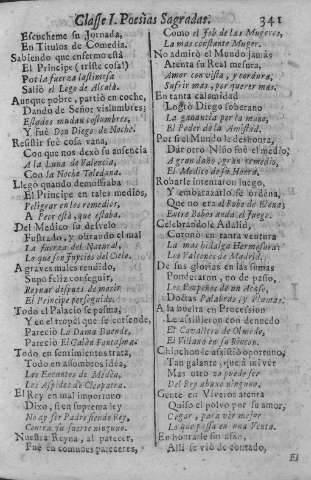 Classe I. Poesias Sagradas. 341
Escucheme su Jornada,
En Titulos de Comedia.
Sabiendo que enfermo està
El Principe (triste cosa!)
Por la fuerza lastimosa
Saliò el Lego de Alcalà.
Aunque pobre, partiò en coche,
Dando de Señor vislumbres;
Estados mudan costumbres,
Y fuè Don Diego de Noche.
Resistir fuè cosa vana,
Con que nos dexò su ausencia
A la Luna de Valencia,
Con la Noche Toledana.
Llegò quando demostraba
El Principe en tales medios,
Peligrar en los remedios,
A Peor està, que estaba.
Del Medico su desvelo
Frustrado, y obrando el mal
La fuerza del Natural,
Lo que son Juycios del Cielo.
A graves males rendido,
Supo feliz conseguir,
Reynar despues de morir
El Principe perseguido.
Todo el Palacio se pasma,
Y en el tropèl que se entiende,
Pareciò La Dama Duende,
Pareciò El Galàn Fantasma.
Todo en sentimientos trata,
Todo en assombros idèa,
Los Encantos de Medèa,
Los Aspides de Cleopatra.
El Rey en mal importuno
Dixo, si en suprema ley
No ay ser Padre siendo Rey,
Contra su suerte ninguno.
Nuestra Reyna, al parecer,
Fuè en comunes pareceres,
Como el Job de las Mugeres,
La mas constante Muger.
No admirò el Mundo jamàs
Atenta su Real mesura,
Amor con vista, y cordura,
Sufrir mas, por querer mas.
En tanta calamidad
Logrò Diego soberano
La ganancia por la mano,
El Poder de la Amistad.
Por si el Mundo le deshonra,
Dàr otro Niño fuè el medio,
A gran daño, gran remedio,
El Medico de su Honra.
Robarle intentaron luego,
Y embarazarlo fuè ordena,
Que no era el Robo de Elena;
Entre Bobos anda el Juego.
Celebrandole Adalid,
Coronò en tanta ventura
La mas hidalga Hermosura:
Los Valcones de Madrid.
De sus glorias en las sumas
Ponderaron, no de passo,
Los Empeños de un Acaso,
Doctas Palabras, y Plumas.
A la buelta en Procession
Le assistieron con denuedo
El Cavallero de Olmedo,
El Villano en su Rincon.
Chinchon se assistiò oportuno,
Tan galante, que à inferir
Mas otro no puede ser
Del Rey abaxo ninguno.
Gente en Viveros atenta
Quiso el polvo por su amor,
Cegar, para ver mejor
Lo que passa en una Venta.
En honrarle sin asno,
Alli se viò de contado,
El